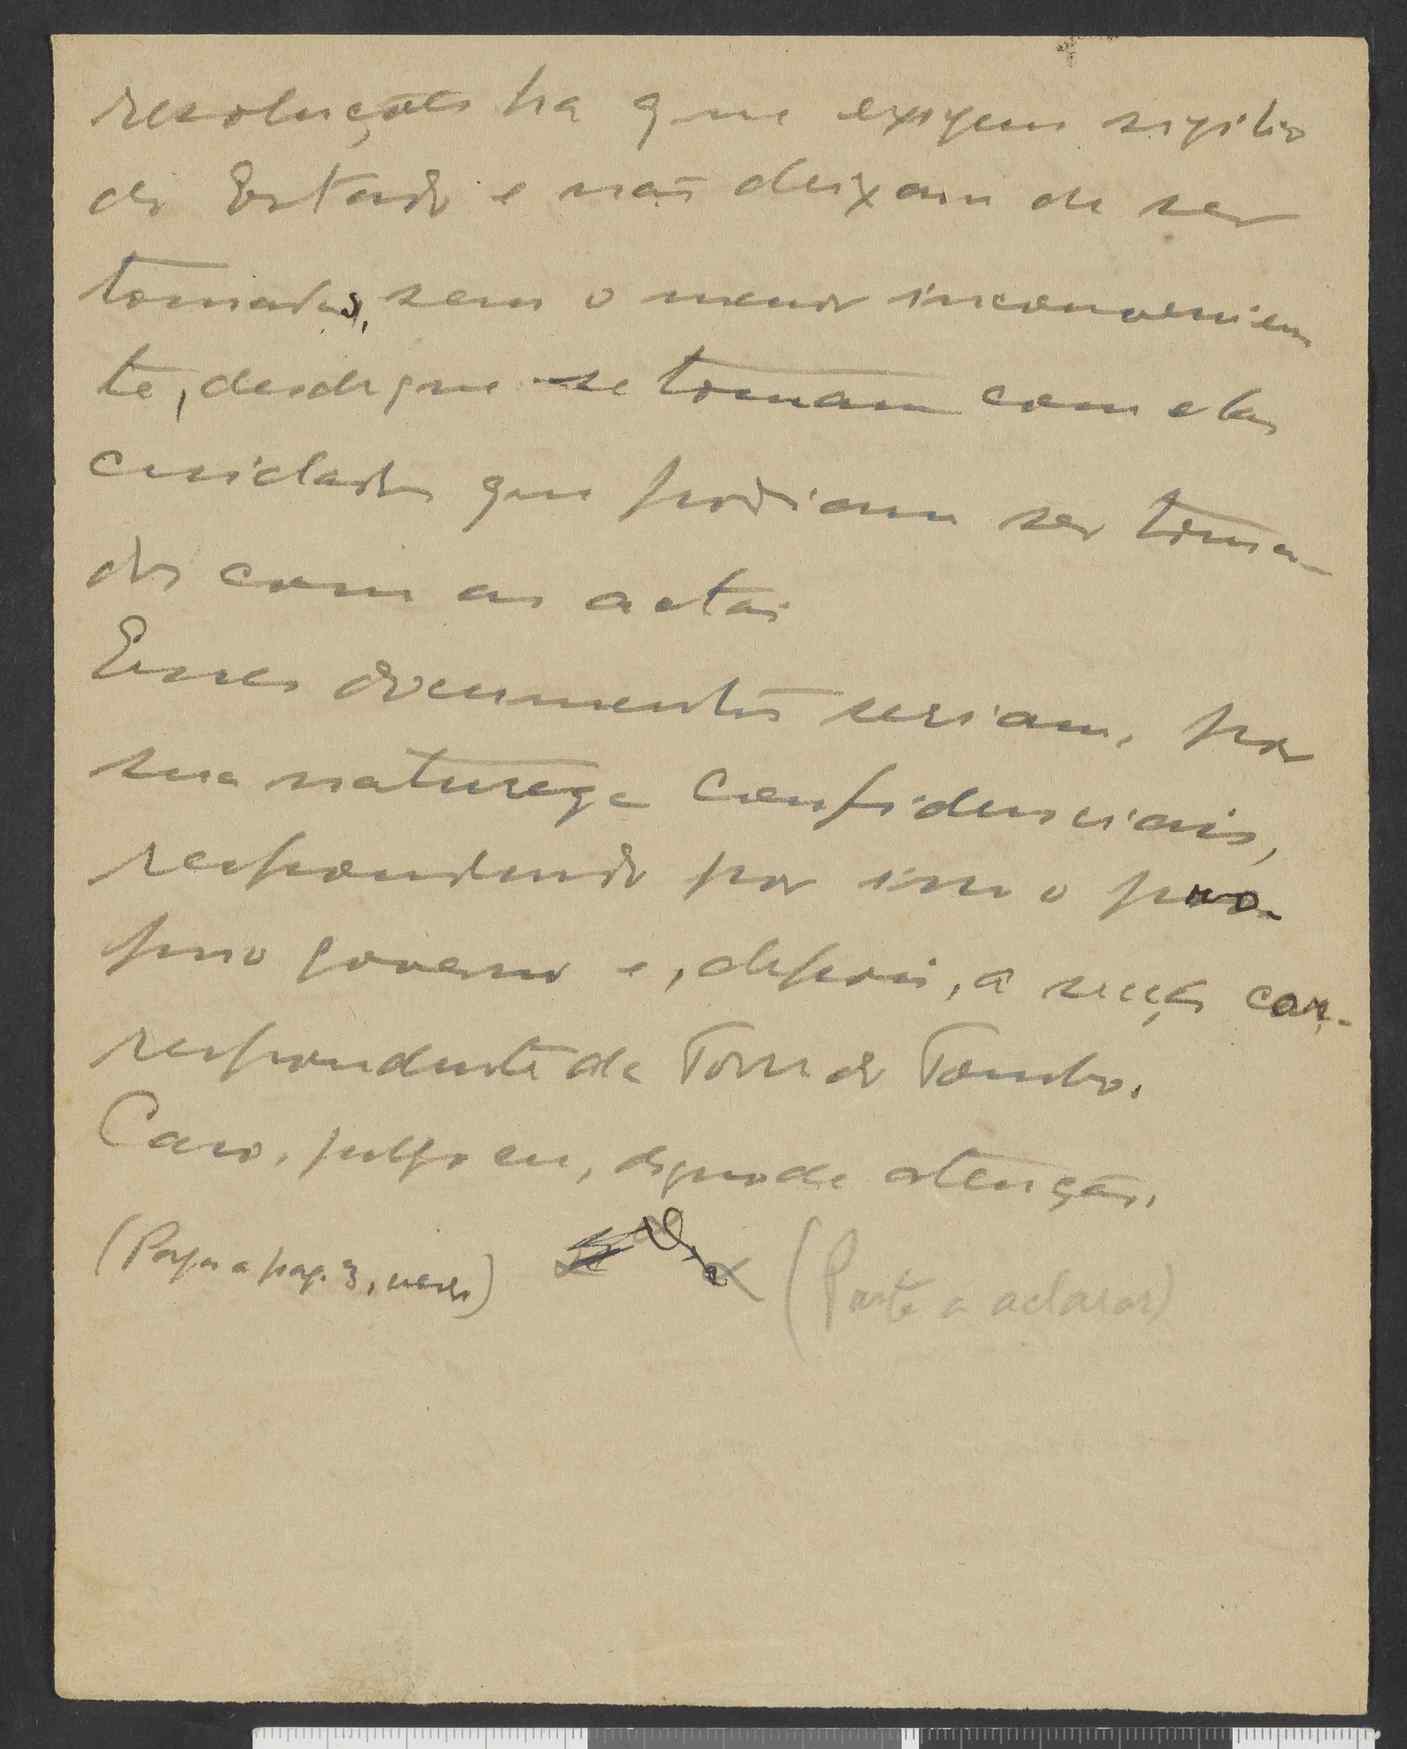 resoluções ha que exigem sigilio
do Estado e não deixam de ser
tomadas, sem o menor inconvenien
te, desde que se tomam com elas
cuidados que podiam ser toma-
dos com as actas
Esses documentos seriam, por
sua natureza confidenciais,
respondendo por isso o pro-
prio governo e, depois, a secção cor-
respondente da Torre do Tombo.
Caso, julgo eu, digno de atenção.
(Passa a pag. 3, verso) (Parte a aclarar)